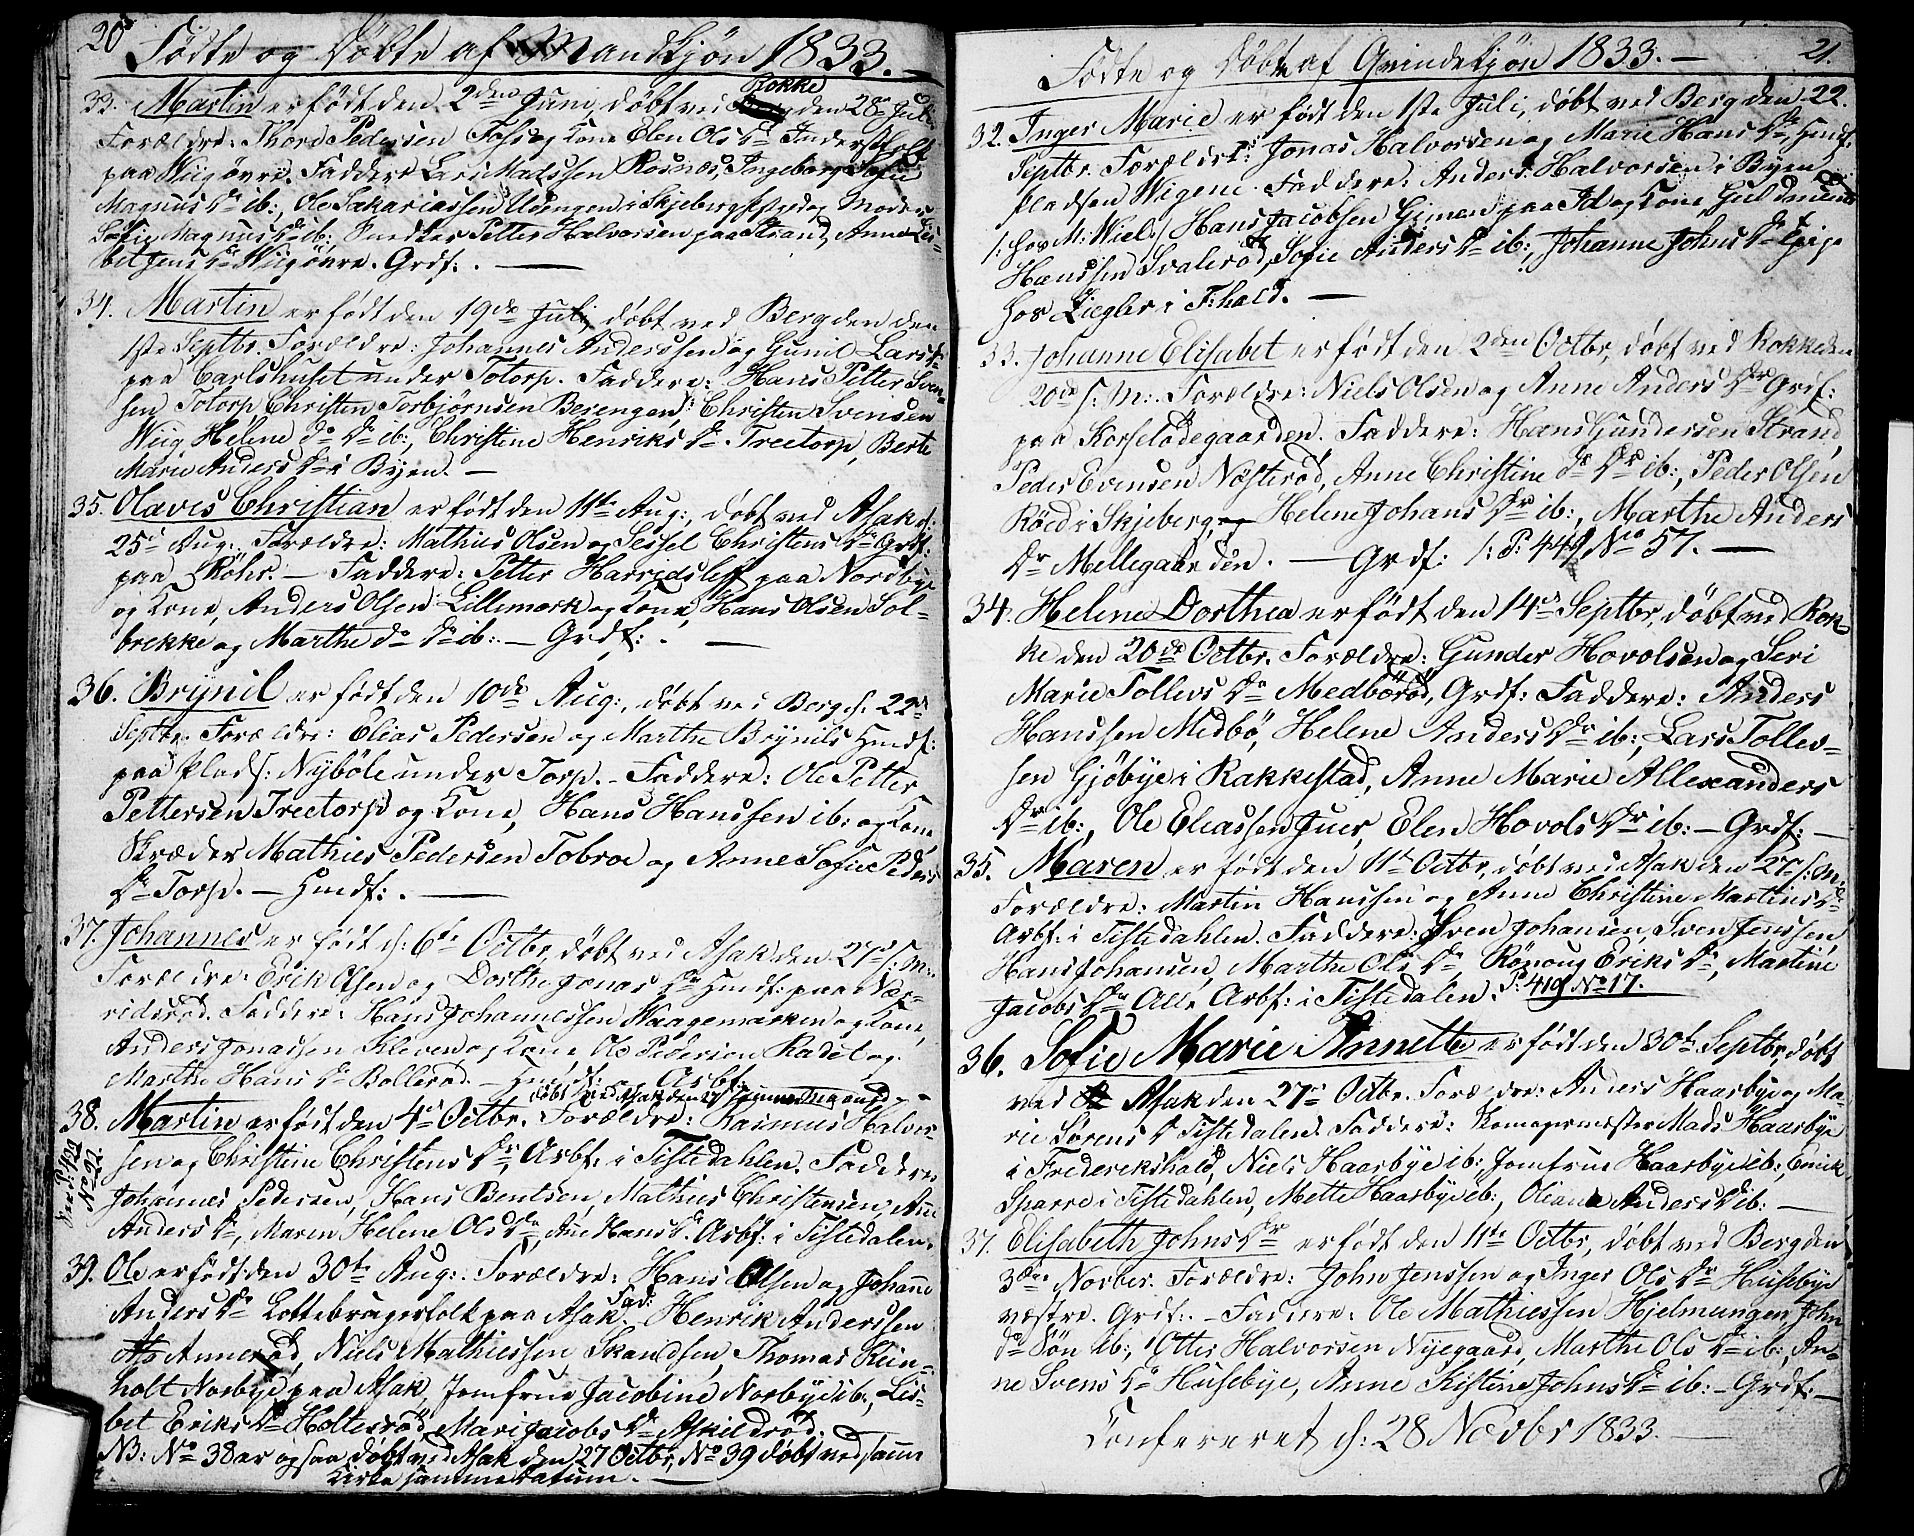 20
Födte og Döbte af Mandkjön 1833.
33. Martin er födt den 2den Juni, döbt ved Rokke den 28de Juli
Forældre: Thore Pedersen Foss og Kone Elen Ols Dr Inderstfolk
paa Wiig övre. Faddere Lars Madssen Rosnæs, Ingeborg Sofie
Magnus Dr ib:, Ole Sakariassen Udengen i Skjeberg
Sofie Magnus Dr ib:, Smedker Petter Halvorsen paa Strand, Anne Lis-
bet Jens Dr Wiig övre. Grdf:.
34. Martin er födt den 19de Juli, döbt ved Berg den den
1ste Septbr. Forældre: Johannes Anderssen og Gunil Lars Dr
paa Carlshuset under Totorp. Faddere: Hans Petter Sven-
sen Totorp, Christen Torbjörnsen Berengen, Christen Svensen
Wiig Helene do Dr ib:, Christine Henriks Dr Treetorp, Berte
Marie Anders Dr i Byen.
35. Olaves Christian er födt den 11te Aug:, döbt ved Asak d:
25de Aug: Forældre: Mathies Olsen og Sessel Christens Dr Grdf:
paa Sköhr. Faddere: Petter Harridsleff paa Nordbye
og Kone, Anders Olsen Lillemark og Kone, Hans Olsen Sol-
brekke og Marthe do Dr ib: Grdf:.
36. Brynil er födt den 10de Aug:, döbt ved Berg d. 22de
Septbr Forældre: Elias Pedersen og Marthe Brynils Hmdf:
paa Plads: Nyböle under Torp. Faddere: Ole Petter
Pettersen Treetorp og Kone, Hans Hanssen ib: og Kone,
Skræder Mathies Pedersen Tobroe og Anne Sofie Peders
Dr Torp. Hmdf:.
37. Johannes er födt d: 6te Octbr, döbt ved Asak den 27de s: M:
Forældre: Erik Olsen og Dorthe Jonas Dr Hmdf: paa Nær-
ridsröd. Faddere: Hans Johannessen Haagemarken og Kone,
Anders Jonassen Kleven og Kone, Ole Pedersen Radet og
Marthe Hans Dr Bollerød. Hmdf:
döbt ved Asak den 27 samme Maaned
38. Martin er födt den 4de Octbr. Forældre: Rasmus Halvor-
sen og Christine Christens Dr, Arbf: i Tistedahlen. Faddere
Johannes Pedersen, Hans Bentsen, Mathies Christensen, Ane
Anders Dr, Maren Helene Ols Dr, Ane Hans Dr Arbf: i Tistedalen.
P: 420
No 22.
39. Ole er födt den 30te Aug: Forældre: Hans Olsen og Johane
Anders Dr Lottebrugerfolk paa Asak. Fad: Henrik Anderssen
Anneröd, Niels Mathiessen Skandsen, Thomas Rein-
holt Norbye paa Asak, Jomfrue Jacobine Norbye ib:, Lis-
bet Eriks Dr Holteröd, Mari Jacobs Dr Askildröd.
NB: No 38 er ogsaa döbt ved Asak den 27 Octbr, No 39 döbt ved samme
Kirke samme Datum.
21.
Födte og Döbte af Qvindekjön 1833.
32. Inger Marie er födt den 1ste Juli, döbt ved Berg den 22.
Septbr. Forældre: Jonas Halvorsen og Marie Hans Dr Hmdf:
Pladsen Wigene. Faddere: Anders Halvorsen i Byen
/: hos M: Wiel:/ Hans Jacobsen Gimen paa Id og Kone Gulden
Hanssen Svaleröd, Sofie Anders Dr ib:, Johanne Johns Dr Pige
hos Ziegler i F:hald.
33. Johanne Elisabet er födt den 2den Octbr, döbt ved Rokke den
20de s: M: Forældre: Niels Olsen og Anne Anders Dr Grdf:
paa Korselödegaarden. Faddere: Hans Gundersen Strand,
Peder Evensen Næsteröd, Anne Christine do Dr ib:, Peder Olsen
Röed i Skjeberg, og Helene Johans Dr ib:, Marthe Anders
Dr Mellegaarden. Grdf: /: P: 449 No 57.
34. Helene Dorthea er födt den 14de Septbr, döbt ved Rok-
ke den 20de Octbr. Forældre: Gunder Hovolsen og Seri
Marie Tollevs Dr Medböröd, Grdf: Faddere: Anders
Hanssen Medbö, Helene Anders Dr ib:, Lars Tollev-
sen Gjöbye i Rakkestad, Anne Marie Allexanders
Dr ib:, Ole Eliassen Juer, Elen Hovols Dr ib: Grdf:
35. Maren er födt den 11te Octbr, döbt ved Asak den 27de s: M:
Forældre: Martin Hanssen og Anne Christine Martins Dr
Arbf: i Tistedahlen. Faddere: Sven Johansen, Sven Jenssen
Hans Johansen, Marthe Ols Dr, Rönoug Eriks Dr, Martine
Jacobs Dr Alle Arbf: i Tistedalen. P: 419 No 17.
36. Sofie Marie Annette er födt den 30te Septbr, döbt
ved Asak den 27de Octbr. Forældre: Anders Haarbye og Ma-
rie Sörens Dr Tistedalen. Faddere: Skomagermester Mads Haarbye
i Frederikshald, Niels Haarbye ib: Jomfrue Haarbye ib:, Emrik
Sparre i Tistedahlen, Mette Haarbye ib:, Oliane Anders Dr ib:
37. Elisabeth Johns Dr er födt den 11te Octbr, döbt ved Berg den
3die Novbr. Forældre: John Jenssen og Inger Ols Dr Husebye
væstre. Grdf:. Faddere: Ole Mathiessen Hjelmungen, John
do Sön ib:, Otter Halvorsen Nyegaard, Marthe Ols Dr ib:, An-
ne Svens Dr Husebye, Anne Kistine Johns Dr ib: Grdf:
Confereret d: 28 Novbr 1833.